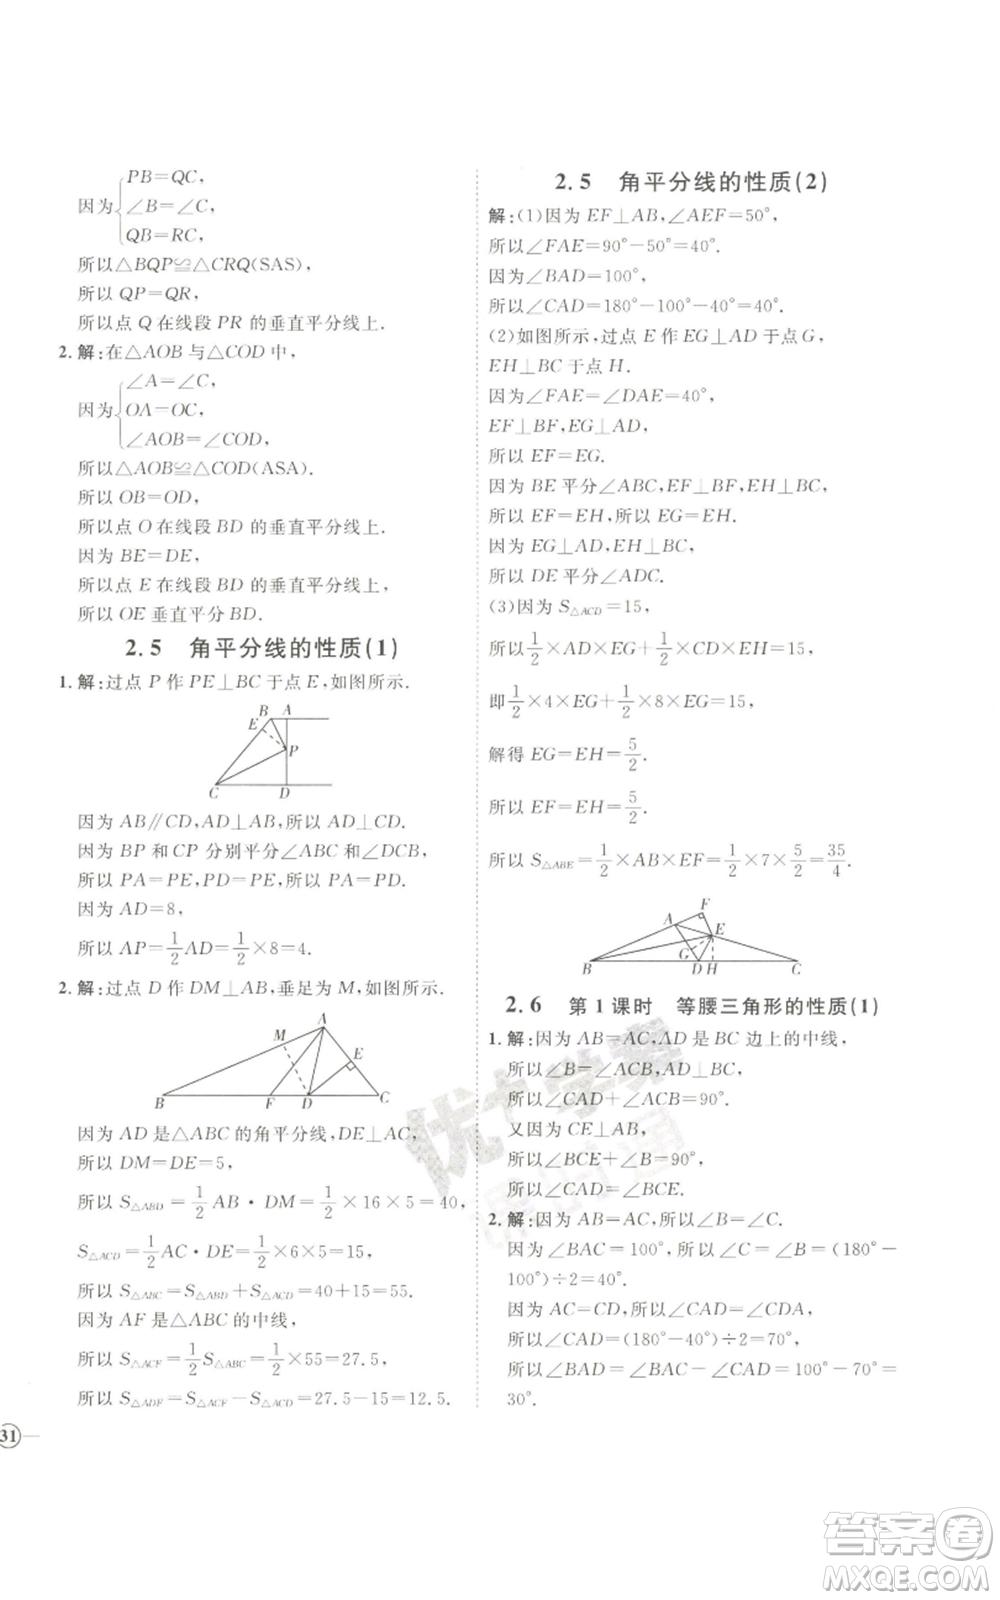 PB=QC,
因为 ∠B=∠C,
QB=RC,
所以△BQP≌△CRQ(SAS)
所以 QP=QR,
所以点 Q 在线段 PR 的垂直平分线上.
2. 解:在△AOB 与△COD 中,
∠A=∠C,
因为 OA=OC,
∠AOB=∠COD,
所以△AOB≌△COD(ASA).
所以 OB=OD,
所以点 O 在线段 BD 的垂直平分线上.
因为 BE=DE,
所以点 E 在线段 BD 的垂直平分线上,
所以 OE 垂直平分 BD.
2.5 角平分线的性质(1)
1. 解:过点 P 作 PE⊥BC 于点 E,如图所示.
B A
E
P
C D
因为 AB∥CD,AD⊥AB,所以 AD⊥CD.
因为 BP 和 CP 分别平分∠ABC 和∠DCB,
所以 PA=PE,PD=PE,所以 PA=PD.
因为 AD=8,
所以 AP=1/2AD=1/2×8=4.
2. 解:过点 D 作 DM⊥AB,垂足为 M,如图所示.
A
M
E
B F D C
因为 AD 是△ABC 的角平分线,DE⊥AC,
所以 DM=DE=5,
所以 S△ABD=1/2AB·DM=1/2×16×5=40,
S△ACD=1/2AC·DE=1/2×6×5=15,
所以 S△ABC=S△ABD+S△ACD=40+15=55.
因为 AF 是△ABC 的中线,
所以 S△ACF=1/2S△ABC=1/2×55=27.5,
所以 S△ADF=S△ACF-S△ACD=27.5-15=12.5.
31
2.5 角平分线的性质(2)
解:(1)因为 EF⊥AB,∠AEF=50°,
所以∠FAE=90°-50°=40°.
因为∠BAD=100°,
所以∠CAD=180°-100°-40°=40°.
(2)如图所示,过点 E 作 EG⊥AD 于点 G,
EH⊥BC 于点 H.
因为∠FAE=∠DAE=40°,
EF⊥BF,EG⊥AD,
所以 EF=EG.
因为 BE 平分∠ABC,EF⊥BF,EH⊥BC,
所以 EF=EH,所以 EG=EH.
因为 EG⊥AD,EH⊥BC,
所以 DE 平分∠ADC.
(3)因为 S△ACD=15,
所以1/2×AD×EG+1/2×CD×EH=15,
即1/2×4×EG+1/2×8×EG=15,
解得 EG=EH=5/2.
所以 EF=EH=5/2.
所以 S△ABE=1/2×AB×EF=1/2×7×5/2=35/4.
F
A
E
G
B D H C
2.6 第1课时 等腰三角形的性质(1)
1. 解:因为 AB=AC,AD 是 BC 边上的中线,
所以∠B=∠ACB,AD⊥BC,
所以∠CAD+∠ACB=90°.
又因为 CE⊥AB,
所以∠BCE+∠B=90°,
所以∠CAD=∠BCE.
2. 解:因为 AB=AC,所以∠B=∠C.
因为∠BAC=100°,所以∠B=∠C=(180°-
100°)÷2=40°.
因为 AC=CD,所以∠CAD=∠CDA,
所以∠CAD=(180°-40°)÷2=70°,
所以∠BAD=∠BAC-∠CAD=100°-70°=
30°.
优+学案
课时通
答案卷
MXQE.COM